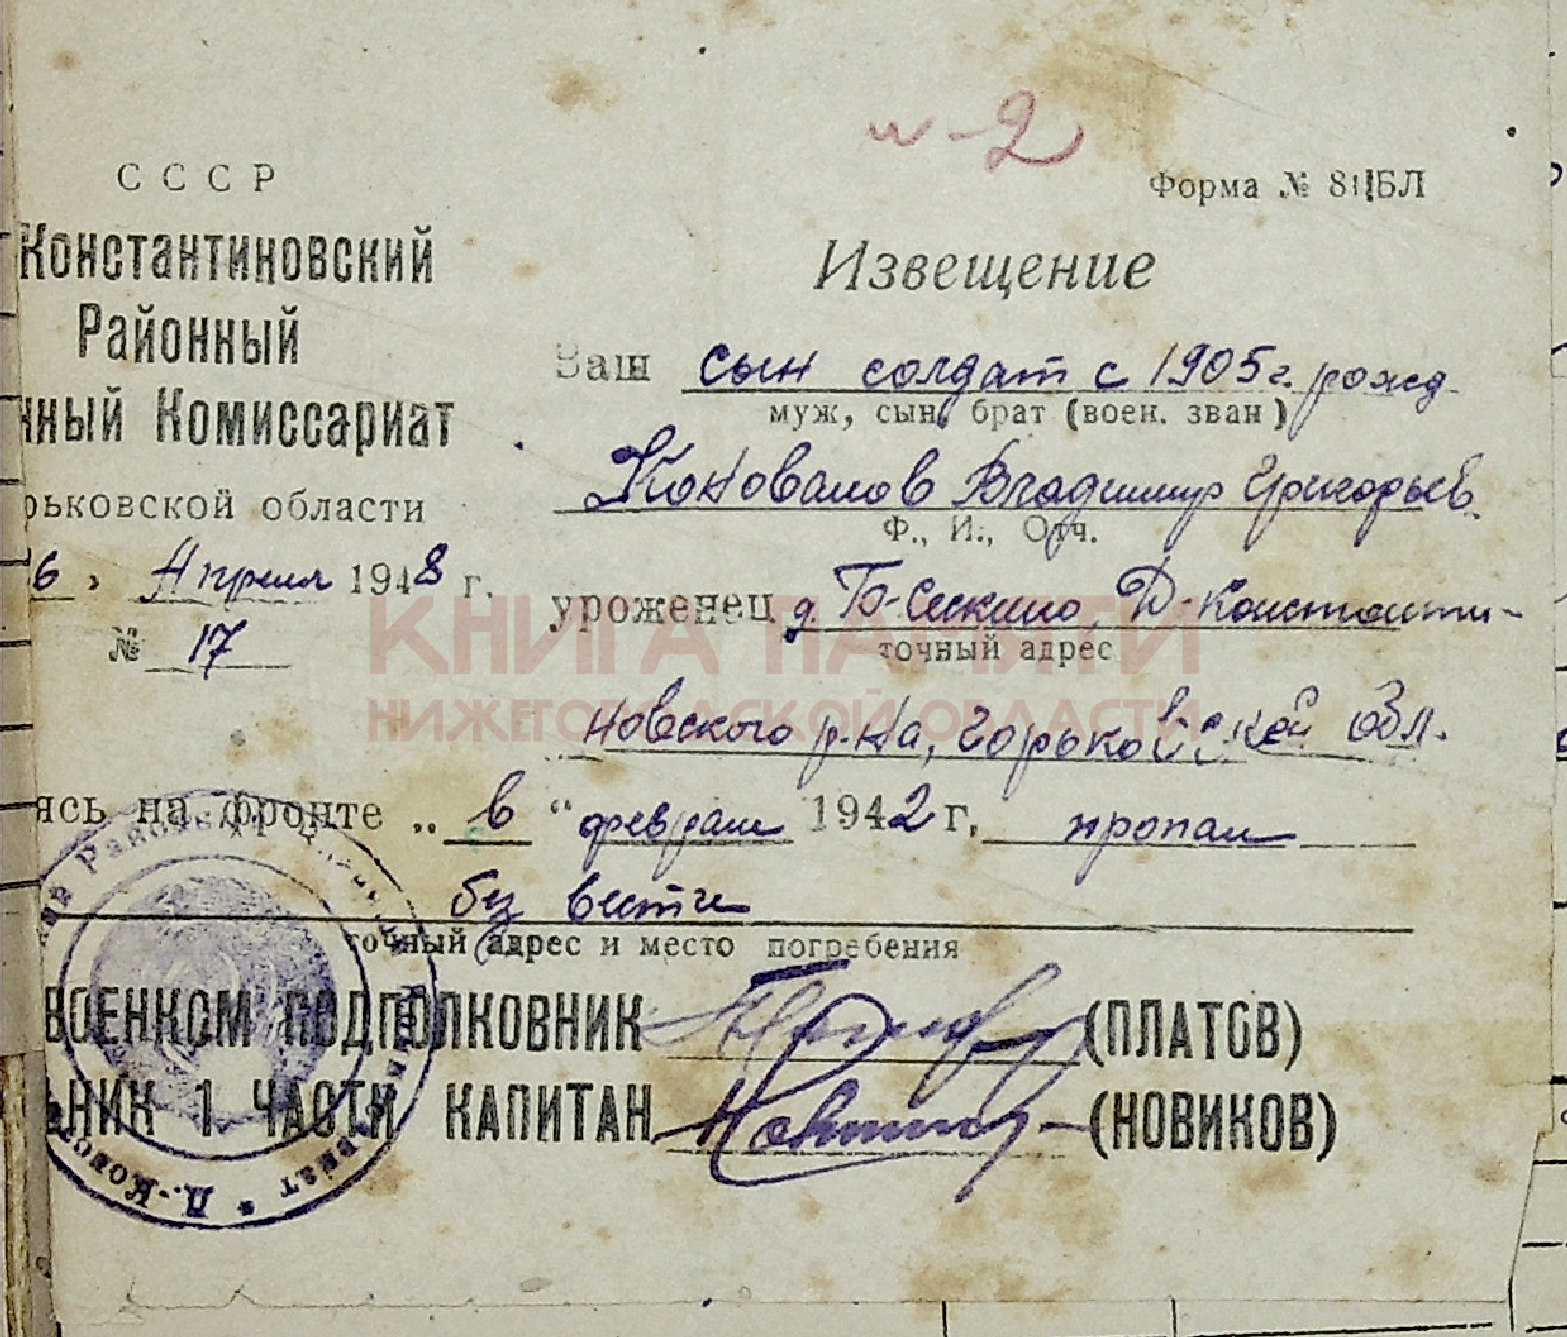 и-2
СССР
Форма № 8ЦБЛ
Константиновский
Районный
нный Комиссариат
рьковской области
6 " Апреля 1948 г.
№ 17
Извещение
Ваш сын солдат с 1905 г. рожд.
муж, сын, брат (воен. зван)
Коновалов Владимир Григорьев.
Ф., И., Отч.
уроженец д. Б-Сескино, Д-Константи-
точный адрес
новского р-на, Горьковской обл.
ясь на фронте „ в “ феврале 1942 г. пропал
без вести
точный адрес и место погребения
ВОЕНКОМ ПОДПОЛКОВНИК (ПЛАТОВ)
ЬНИК 1 ЧАСТИ КАПИТАН (НОВИКОВ)
КНИГА ПАМЯТИ
НИЖЕГОРОДСКОЙ ОБЛАСТИ